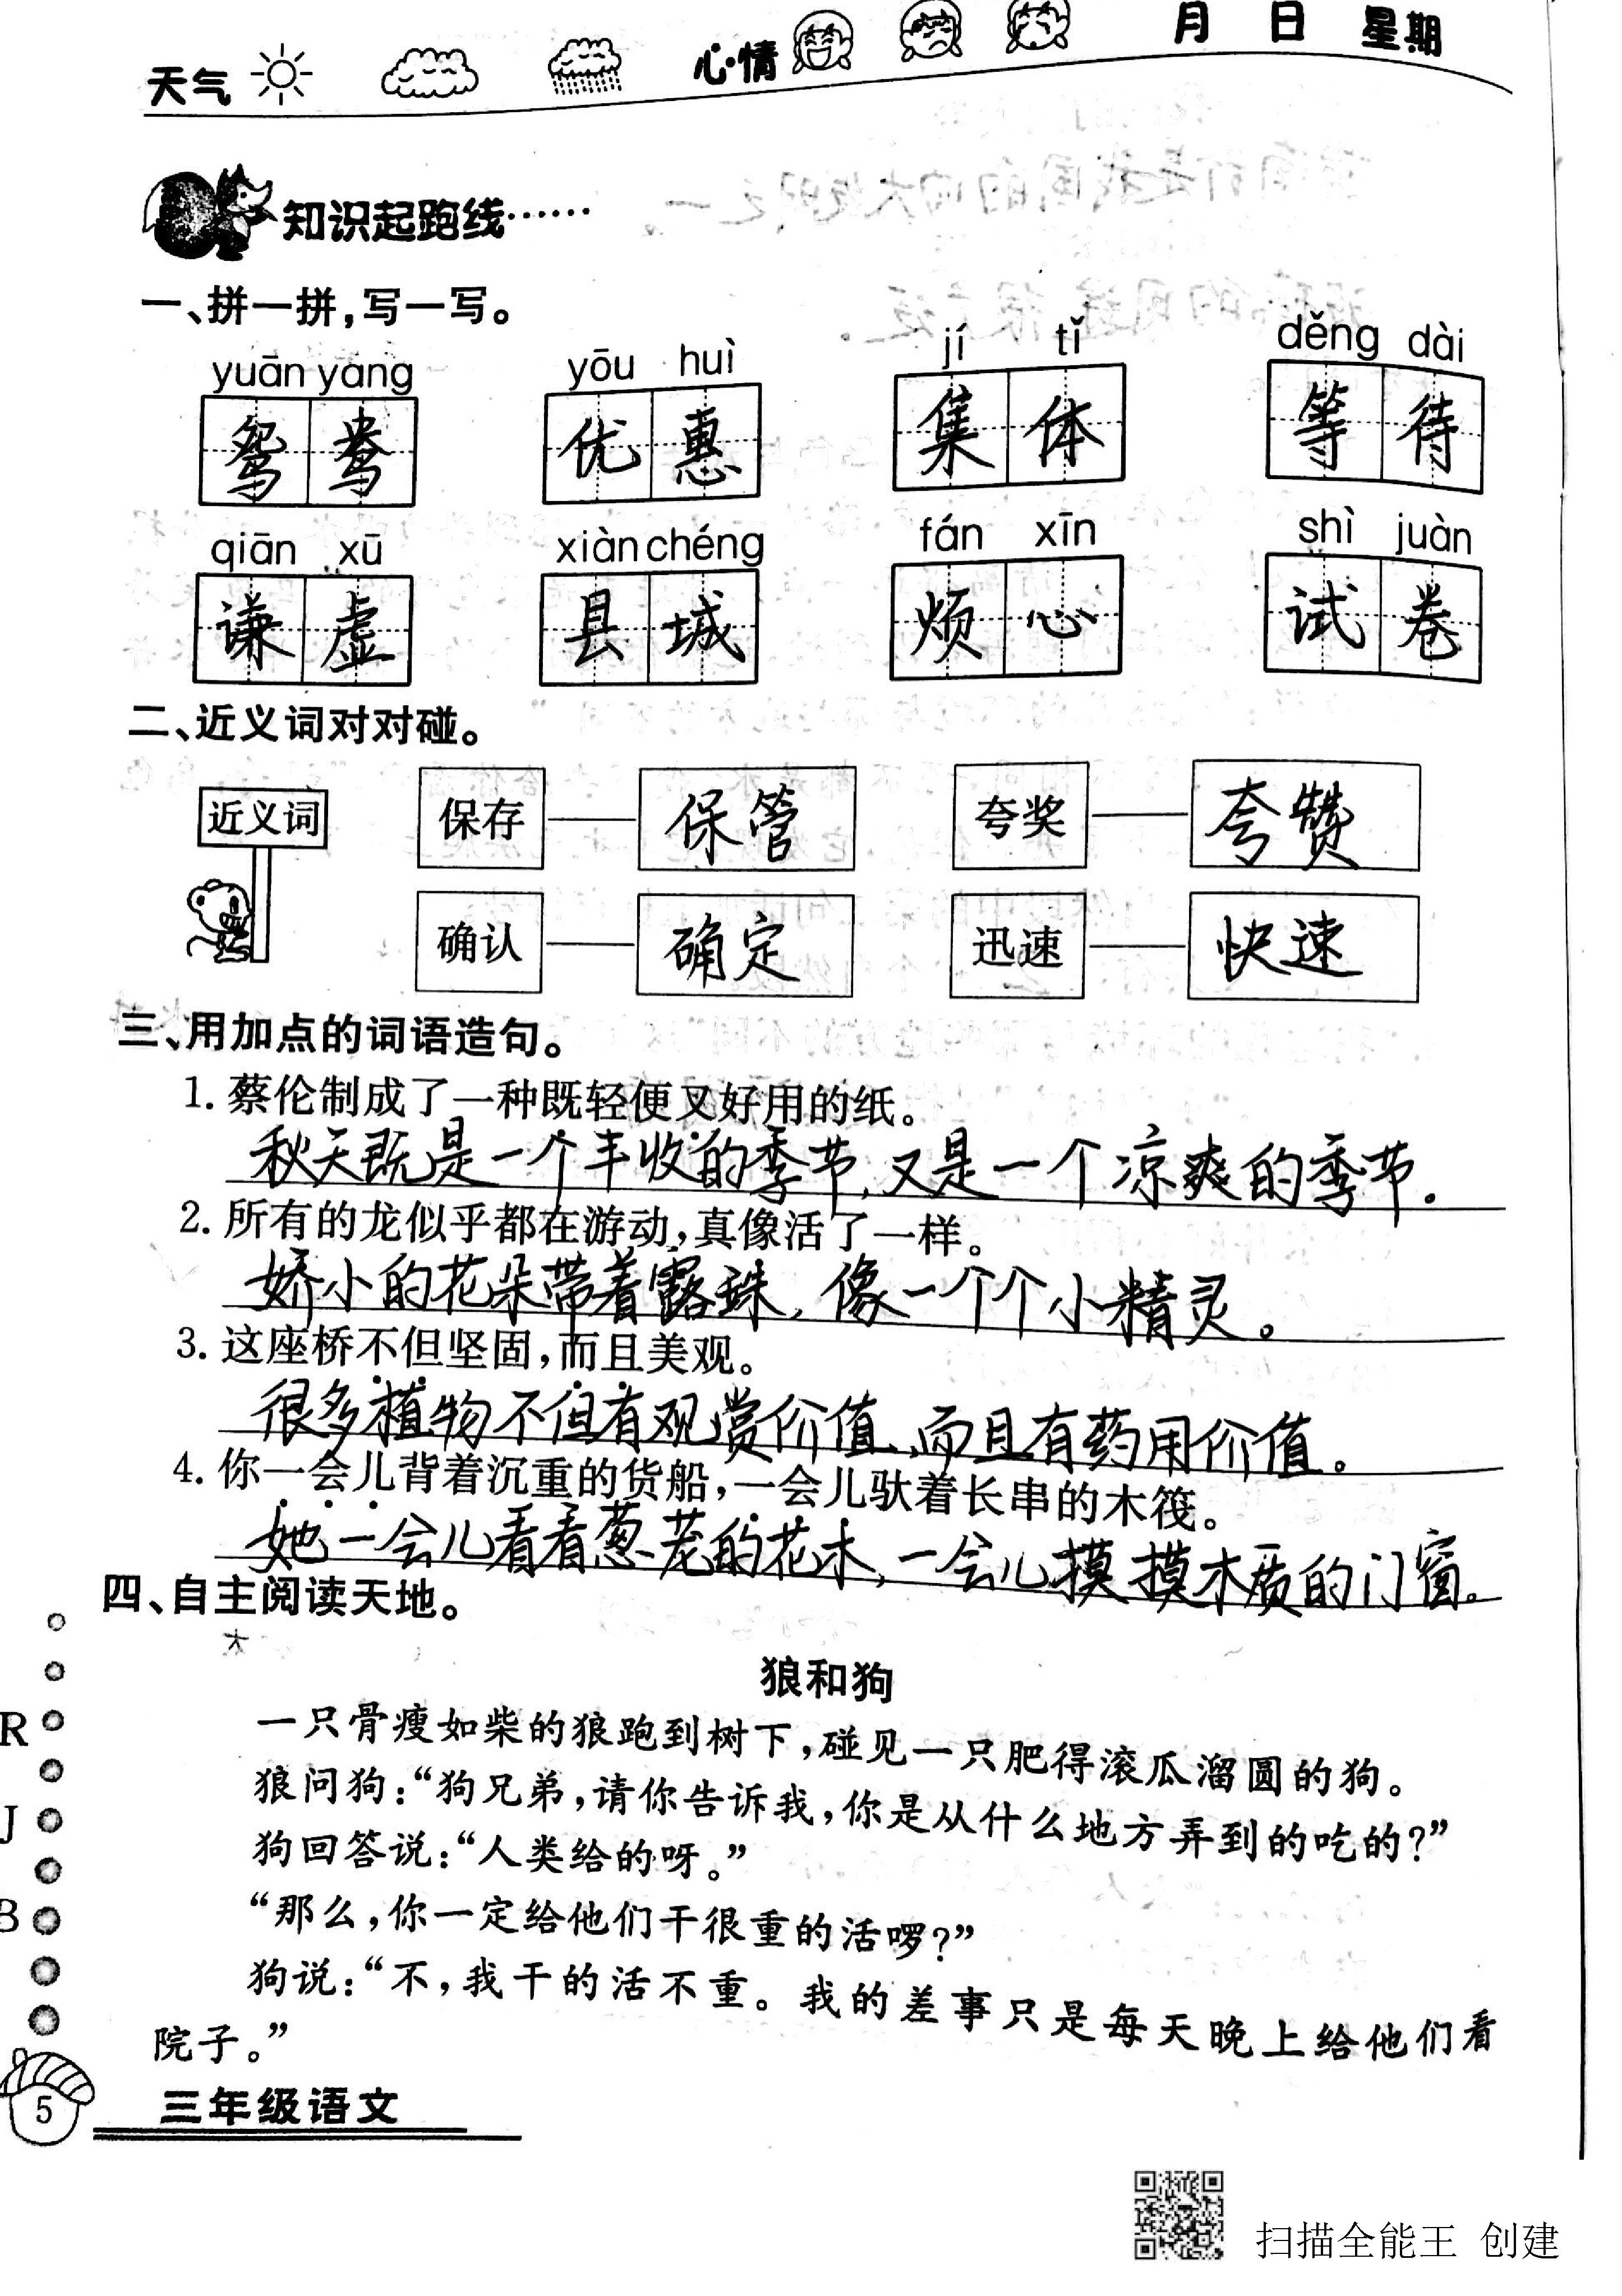 天气 心情 月 日 星期
知识起跑线……
一、拼一拼,写一写。
yuān yāng yōu huì jí tǐ děng dài
鸳鸯 优惠 集体 等待
qiān xū xiàn chéng fán xīn shì juàn
谦虚 县城 烦心 试卷
二、近义词对对碰。
近义词 保存 保管 夸奖 夸赞
确认 确定 迅速 快速
三、用加点的词语造句。
1. 蔡伦制成了一种既轻便又好用的纸。
秋天既是一个丰收的季节,又是一个凉爽的季节.
2. 所有的龙似乎都在游动,真像活了一样。
娇小的花朵带着露珠,像一个个小精灵。
3. 这座桥不但坚固,而且美观。
很多植物不但有观赏价值,而且有药用价值。
4. 你一会儿背着沉重的货船,一会儿驮着长串的木筏。
她一会儿看看葱茏的花木,一会儿摸摸木质的门窗。
四、自主阅读天地。
狼和狗
一只骨瘦如柴的狼跑到树下,碰见一只肥得滚瓜溜圆的狗。
狼问狗:“狗兄弟,请你告诉我,你是从什么地方弄到的吃的?”
狗回答说:“人类给的呀。”
“那么,你一定给他们干很重的活啰?”
狗说:“不,我干的活不重。我的差事只是每天晚上给他们看
院子。”
R
J
B
5 三年级语文
扫描全能王 创建